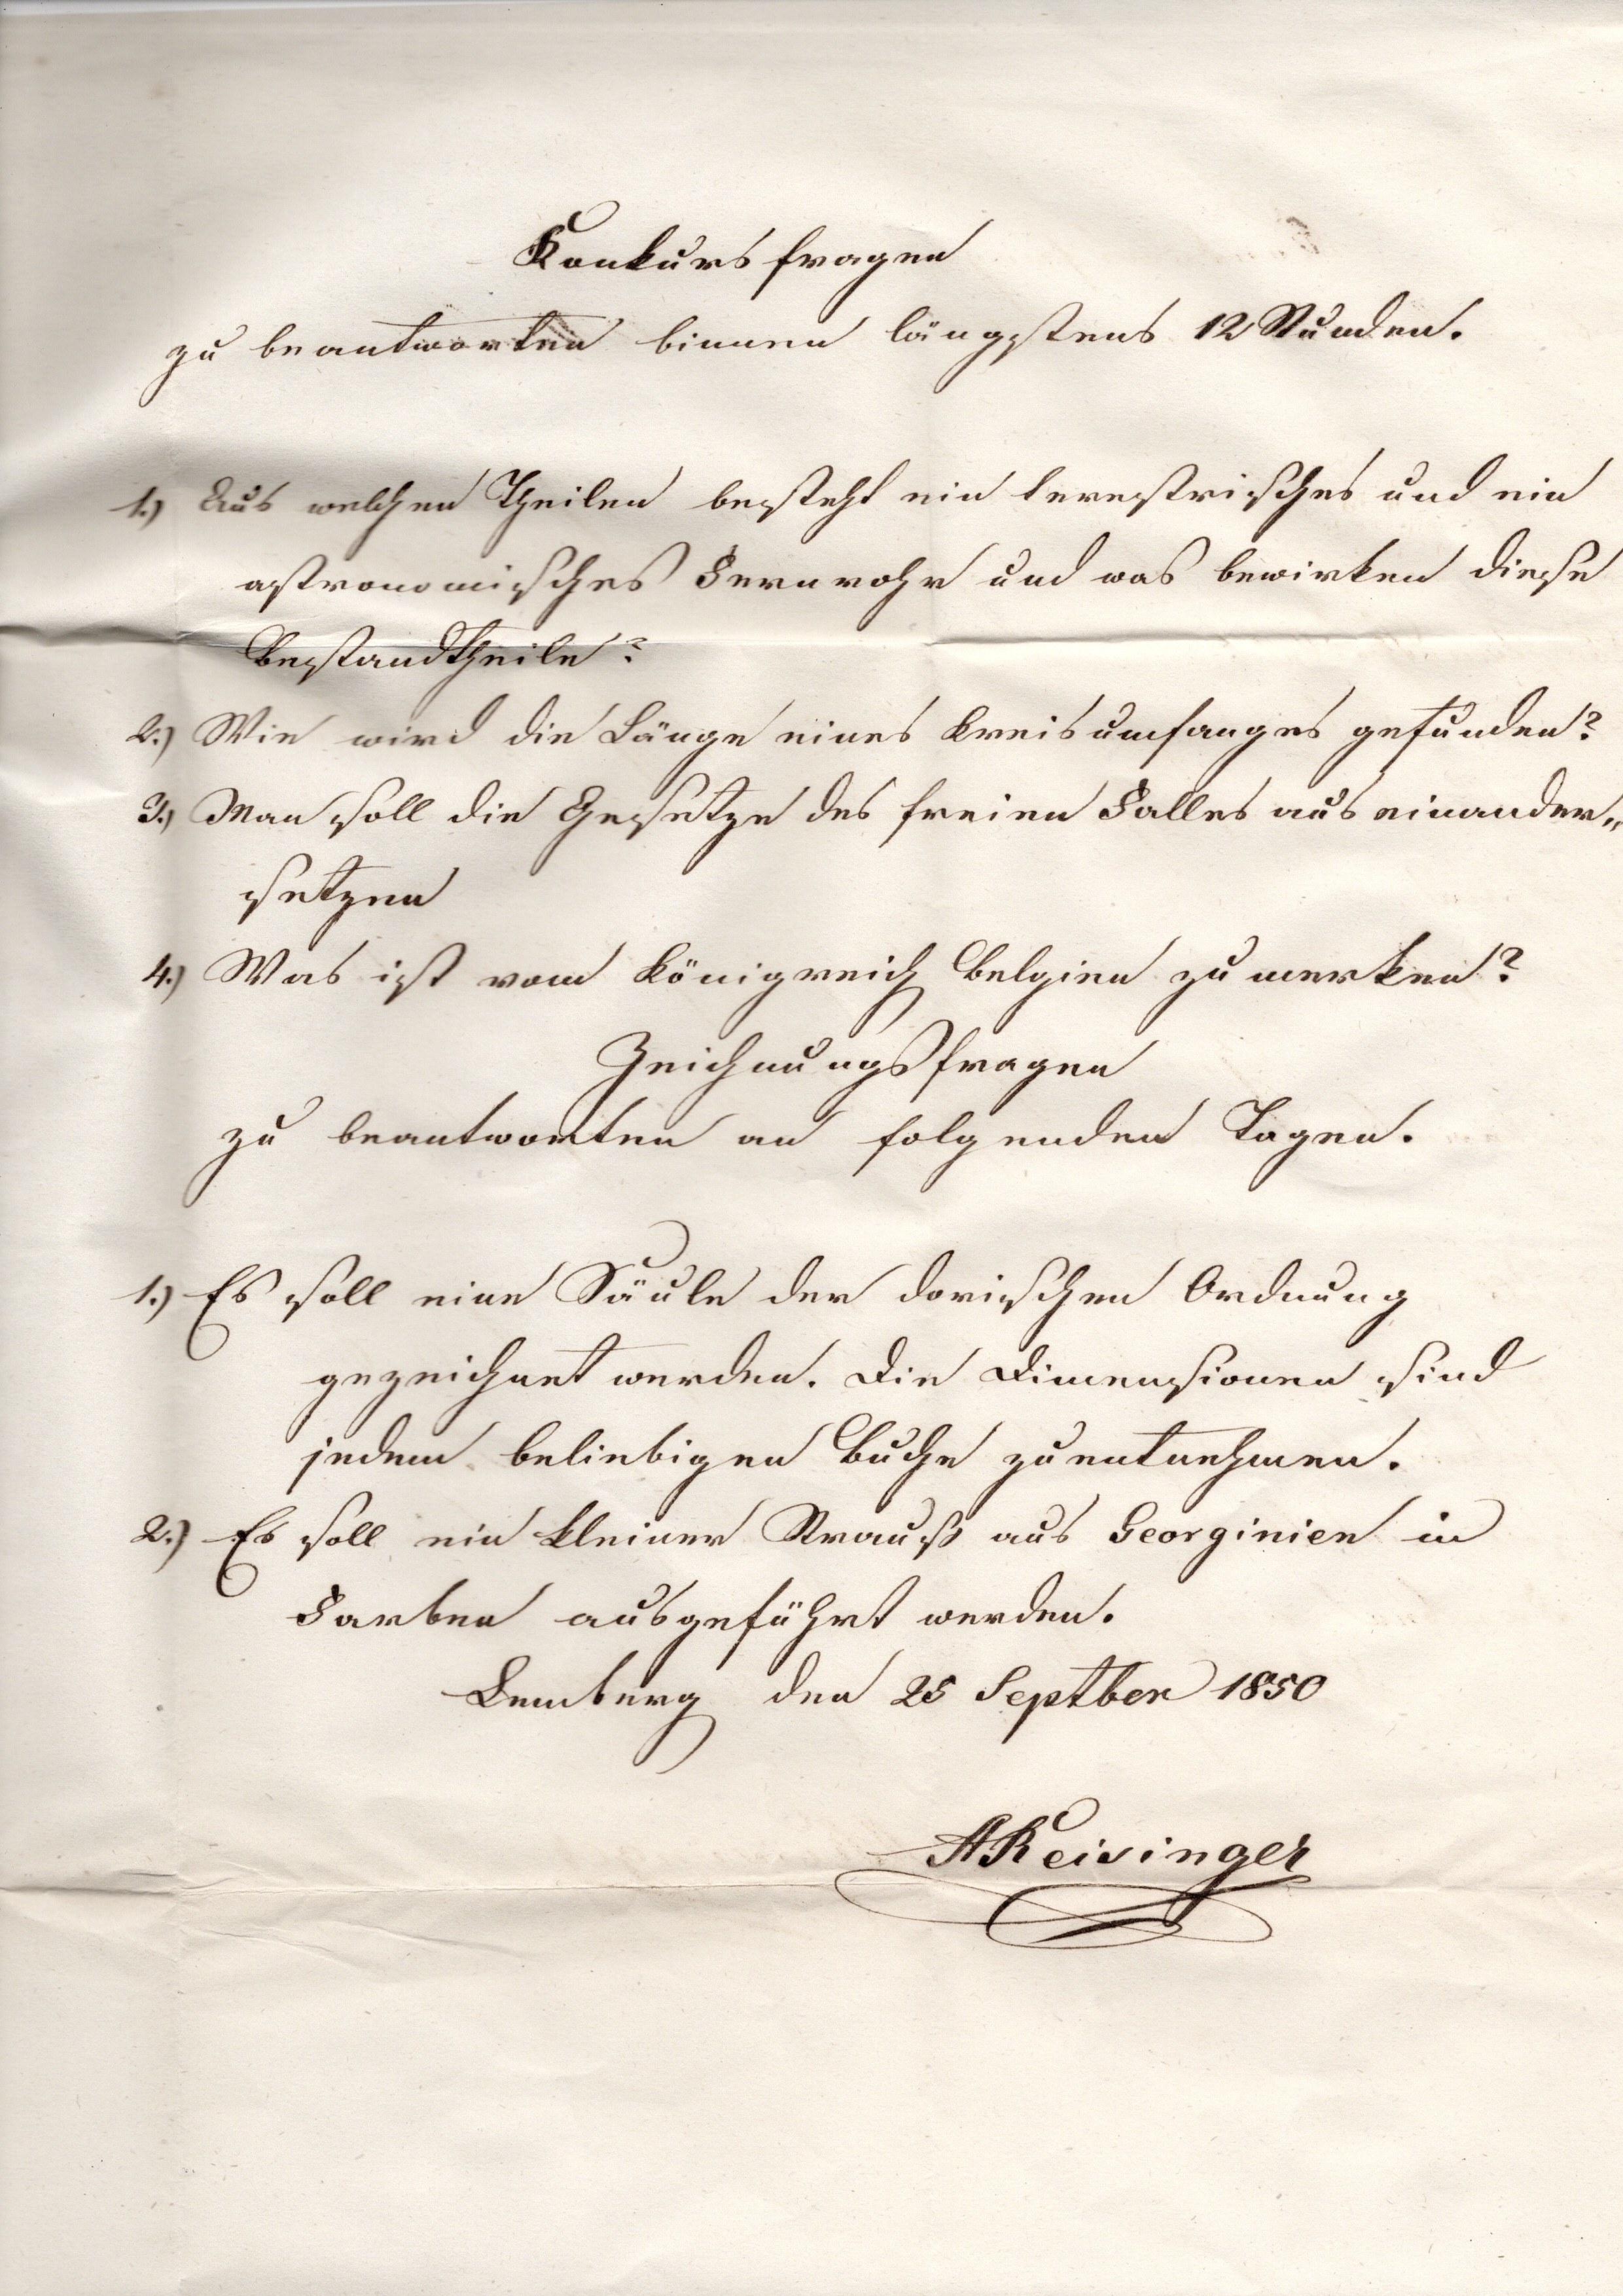 Konkursfragen
zu beantworten binnen längstens 12 Stunden.
1.) Aus welchen Theilen besteht ein terestrisches und ein
astronomisches Fernrohr und was bewirken diese
Bestandtheile?
2.) Wie wird die Länge eines Kreisumfanges gefunden?
3.) Man soll die Gesetze des freien Falles auseinander„
setzen
4.) Was ist vom Königreich Belgien zu merken?
Zeichnungsfragen
zu beantworten an folgenden Tagen.
1.) Es soll eine Säule der dorischen Ordnung
gezeichnet werden. Die Dimensionen sind
jedem beliebigen Buche zu entnehmen.
2.) Es soll ein kleiner Strauß aus Georginien in
Farben ausgeführt werden.
Lemberg den 25 Septber 1850
AReisinger